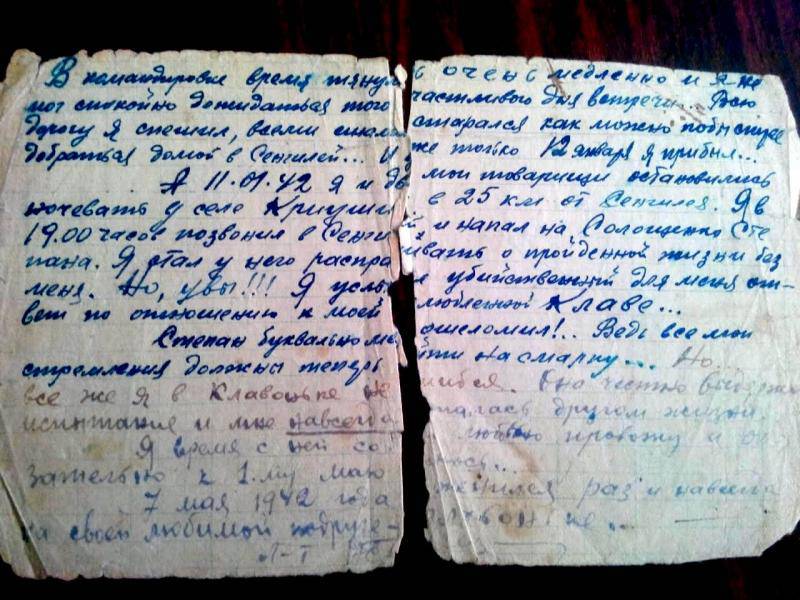 В командировке время тянулось очень медленно и я не
мог спокойно дожидаться того счастливого дня встречи... Всю
дорогу я спешил, всеми силами старался как можно побыстрее
добраться домой в Сенгилей... И уже только 12 января я прибыл...
А 11.01.42 я и два мои товарищи остановились
ночевать у селе Криуши в 25 км от Сенгилея. Я в
19.00 часов позвонил в Сенгилей и напал на Солощенко Сте
пана. Я стал у него распрашивать о пройденной жизни без
меня. Но, увы!!! Я услышал убийственный для меня от-
вет по отношению к моей любленной Клаве...
Степан буквально меня ошеломил!.. Ведь все мои
стремления должны теперь йти на смарку... Но...
все же я в Клавоцьке не ошибся. Она честно выдержа
испытание и мне навсегда осталась другом жизни.
Я время с ней со любвью провожу и
зательно к 1-му маю
7 мая 1942 года женился раз и навсегда
на своей любимой подруге-